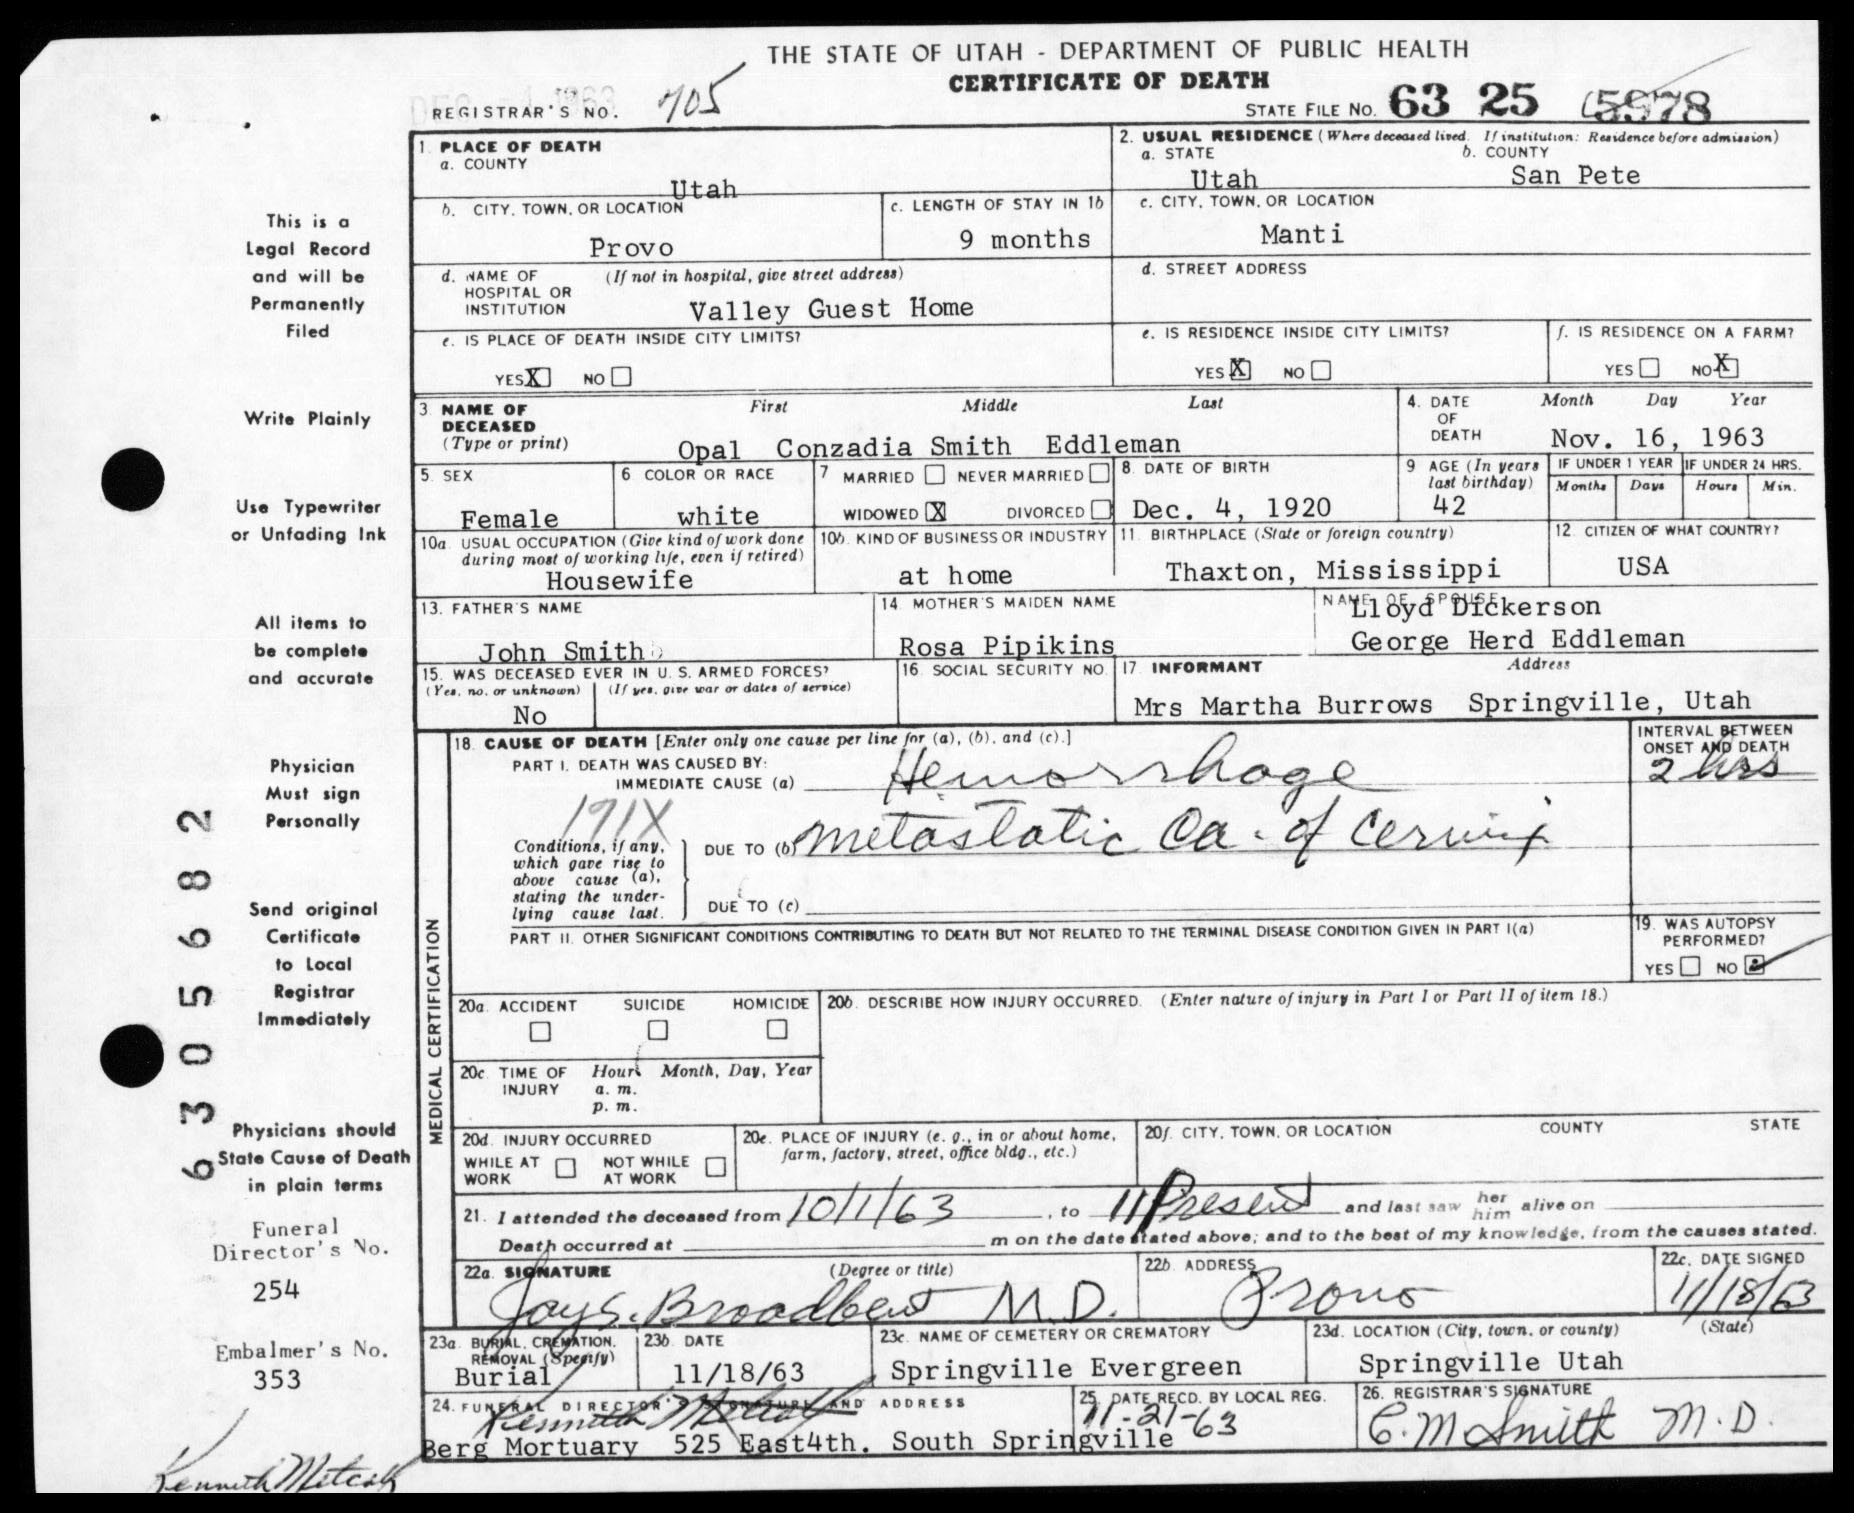 THE STATE OF UTAH - DEPARTMENT OF PUBLIC HEALTH
CERTIFICATE OF DEATH
REGISTRAR'S NO. 705
STATE FILE NO. 63 25 5978
1. PLACE OF DEATH
a. COUNTY
Utah
2. USUAL RESIDENCE (Where deceased lived. If institution: Residence before admission)
a. STATE b. COUNTY
Utah San Pete
b. CITY, TOWN, OR LOCATION
Provo
c. LENGTH OF STAY IN 1b
9 months
c. CITY, TOWN, OR LOCATION
Manti
d. NAME OF HOSPITAL OR INSTITUTION (If not in hospital, give street address)
Valley Guest Home
d. STREET ADDRESS
e. IS PLACE OF DEATH INSIDE CITY LIMITS?
YES X NO
e. IS RESIDENCE INSIDE CITY LIMITS?
YES X NO
f. IS RESIDENCE ON A FARM?
YES NO X
3. NAME OF DECEASED (Type or print)
First Middle Last
Opal Conzadia Smith Eddleman
4. DATE OF DEATH
Month Day Year
Nov. 16, 1963
5. SEX
Female
6 COLOR OR RACE
white
7 MARRIED NEVER MARRIED
WIDOWED X DIVORCED
8. DATE OF BIRTH
Dec. 4, 1920
9 AGE (In years last birthday)
42
IF UNDER 1 YEAR IF UNDER 24 HRS.
Months Days Hours Min.
10a. USUAL OCCUPATION (Give kind of work done during most of working life, even if retired)
Housewife
10b. KIND OF BUSINESS OR INDUSTRY
at home
11. BIRTHPLACE (State or foreign country)
Thaxton, Mississippi
12. CITIZEN OF WHAT COUNTRY?
USA
13. FATHER'S NAME
John Smith
14. MOTHER'S MAIDEN NAME
Rosa Pipikins
NAME OF SPOUSE
Lloyd Dickerson
George Herd Eddleman
15. WAS DECEASED EVER IN U.S. ARMED FORCES?
(Yes, no, or unknown) (If yes, give war or dates of service)
No
16. SOCIAL SECURITY NO.
17. INFORMANT Address
Mrs Martha Burrows Springville, Utah
MEDICAL CERTIFICATION
18. CAUSE OF DEATH [Enter only one cause per line for (a), (b), and (c).]
PART I. DEATH WAS CAUSED BY:
IMMEDIATE CAUSE (a) Hemorrhage
INTERVAL BETWEEN ONSET AND DEATH
2 hrs
191X
Conditions, if any, which gave rise to above cause (a), stating the underlying cause last.
DUE TO (b) metastatic Ca. of Cervix
DUE TO (c)
PART II. OTHER SIGNIFICANT CONDITIONS CONTRIBUTING TO DEATH BUT NOT RELATED TO THE TERMINAL DISEASE CONDITION GIVEN IN PART I(a)
19. WAS AUTOPSY PERFORMED?
YES NO
20a. ACCIDENT SUICIDE HOMICIDE
20b. DESCRIBE HOW INJURY OCCURRED. (Enter nature of injury in Part I or Part II of item 18.)
20c. TIME OF INJURY
Hour Month, Day, Year
a. m.
p. m.
20d. INJURY OCCURRED
WHILE AT WORK NOT WHILE AT WORK
20e. PLACE OF INJURY (e. g., in or about home, farm, factory, street, office bldg., etc.)
20f. CITY, TOWN, OR LOCATION COUNTY STATE
21. I attended the deceased from 10/1/63, to 11 Present and last saw her him alive on
Death occurred at m on the date stated above; and to the best of my knowledge, from the causes stated.
22a. SIGNATURE (Degree or title)
Jay S. Broadbent M.D.
22b. ADDRESS
Provo
22c. DATE SIGNED
11/18/63
23a. BURIAL, CREMATION, REMOVAL (Specify)
Burial
23b. DATE
11/18/63
23c. NAME OF CEMETERY OR CREMATORY
Springville Evergreen
23d. LOCATION (City, town, or county) (State)
Springville Utah
24. FUNERAL DIRECTOR'S SIGNATURE AND ADDRESS
Kenneth Metcalf
Berg Mortuary 525 East4th. South Springville
25. DATE RECD. BY LOCAL REG.
11-21-63
26. REGISTRAR'S SIGNATURE
C. M Smith M.D.
This is a
Legal Record
and will be
Permanently
Filed
Write Plainly
Use Typewriter
or Unfading Ink
All items to
be complete
and accurate
Physician
Must sign
Personally
Send original
Certificate
to Local
Registrar
Immediately
Physicians should
State Cause of Death
in plain terms
Funeral
Director's No.
254
Embalmer's No.
353
Kenneth Metcalf
6305682